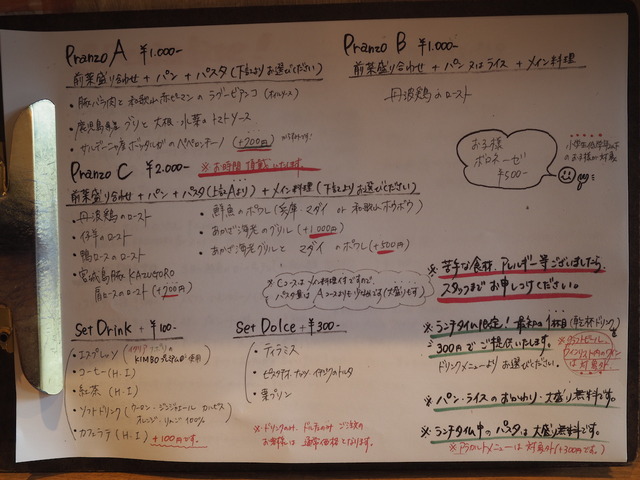 Pranzo A ¥1.000-
前菜盛り合わせ + パン + パスタ (下記よりお選びください)
・豚バラ肉と和歌山赤ピーマンのラグービアンコ (オイルソース)
・鹿児島産ブリと大根・水菜のトマトソース
・サルデーニャ産ボッタルガのペペロンチーノ (+200円)
Pranzo B ¥1.000-
前菜盛り合わせ + パン又はライス + メイン料理
丹波鶏のロースト
お子様
ボロネーゼ
¥500-
小学生低学年以下
のお子様が対象
Pranzo C ¥2.000- ※お時間頂戴いたします
前菜盛り合わせ + パン + パスタ (上記Aより) + メイン料理 (下記よりお選びください)
・丹波鶏のロースト
・仔羊のロースト
・鴨ロースのロースト
・宮城島豚 KAZUGORO
肩ロースのロースト (+200円)
・鮮魚のポワレ (兵庫・マダイ or 和歌山・ホウボウ)
・あかざ海老のグリル (+1,000円)
・あかざ海老グリルとマダイのポワレ (+500円)
※Cコースはメイン料理付ですので、
パスタ量はAコースよりも少なめです (大盛りも可)
※苦手な食材、アレルギー等ございましたら、
スタッフまでお申しつけください。
Set Drink + ¥100-
・エスプレッソ (イタリア・ナポリ KIMBO 使用)
・コーヒー (H・I)
・紅茶 (H・I)
・ソフトドリンク (ウーロン・ジンジャエール・カルピス
オレンジ・りんご100%)
・カフェラテ (H・I) +100円です。
Set Dolce + ¥300-
・ティラミス
・ピスタチオ・ナッツ・イチジクのトルタ
・栗プリン
※ドリンクのみ、ドルチェのみご注文の
お客様は通常価格となります。
※ランチタイム限定! 最初の1杯目 (乾杯ドリンク)
300円でご提供いたします。
ドリンクメニューよりお選びください。
※グラスビール
ワインリスト内のワイン
は対象外
※パン・ライスのおかわり・大盛り無料です。
※ランチタイム中のパスタは大盛り無料です。
※アラカルトメニューは対象外 (+300円です)